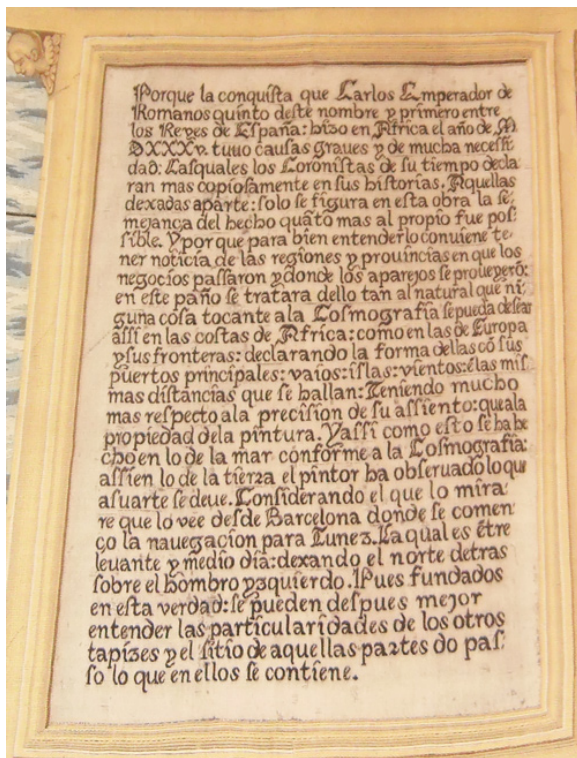 Porque la conquista que Carlos Emperador de
Romanos quinto deste nombre y primero entre
los Reyes de España: hizo en Africa el año de M
DXXXv. tuuo causas graues y de mucha necessi
dad: Lasquales los Coronistas de su tiempo decla
ran mas copiosamente en sus historias. Aquellas
dexadas aparte: solo se figura en esta obra la se
mejança del hecho quãto mas al propio fue pos
sible. Y porque para bien entenderlo conuiene te
ner noticia de las regiones y prouincias en que los
negocios passaron y donde los aparejos se proueyerõ:
en este paño se tratara dello tan al natural que ni
guna cosa tocante ala Cosmografia se pueda desear
assi en las costas de Africa: como en las de Europa
y sus fronteras: declarando la forma dellas cõ sus
puertos principales: vaios: islas: vientos: ẽlas mis
mas distancias que se hallan: Teniendo mucho
mas respecto ala precision de su assiento: que ala
propiedad dela pintura. Y assi como esto se ha he
cho en lo de la mar conforme a la Cosmografia:
assi en lo de la tierra el pintor ha obseruado lo que
a su arte se deue. Considerando el que lo mira
re que lo vee desde Barcelona donde se comen
ço la nauegacion para Tunez. La qual es ẽtre
leuante y medio dia: dexando el norte detras
sobre el hombro yzquierdo. Pues fundados
en esta verdad: se pueden despues mejor
entender las particularidades de los otros
tapizes y el sitio de aquellas partes do pas
so lo que en ellos se contiene.